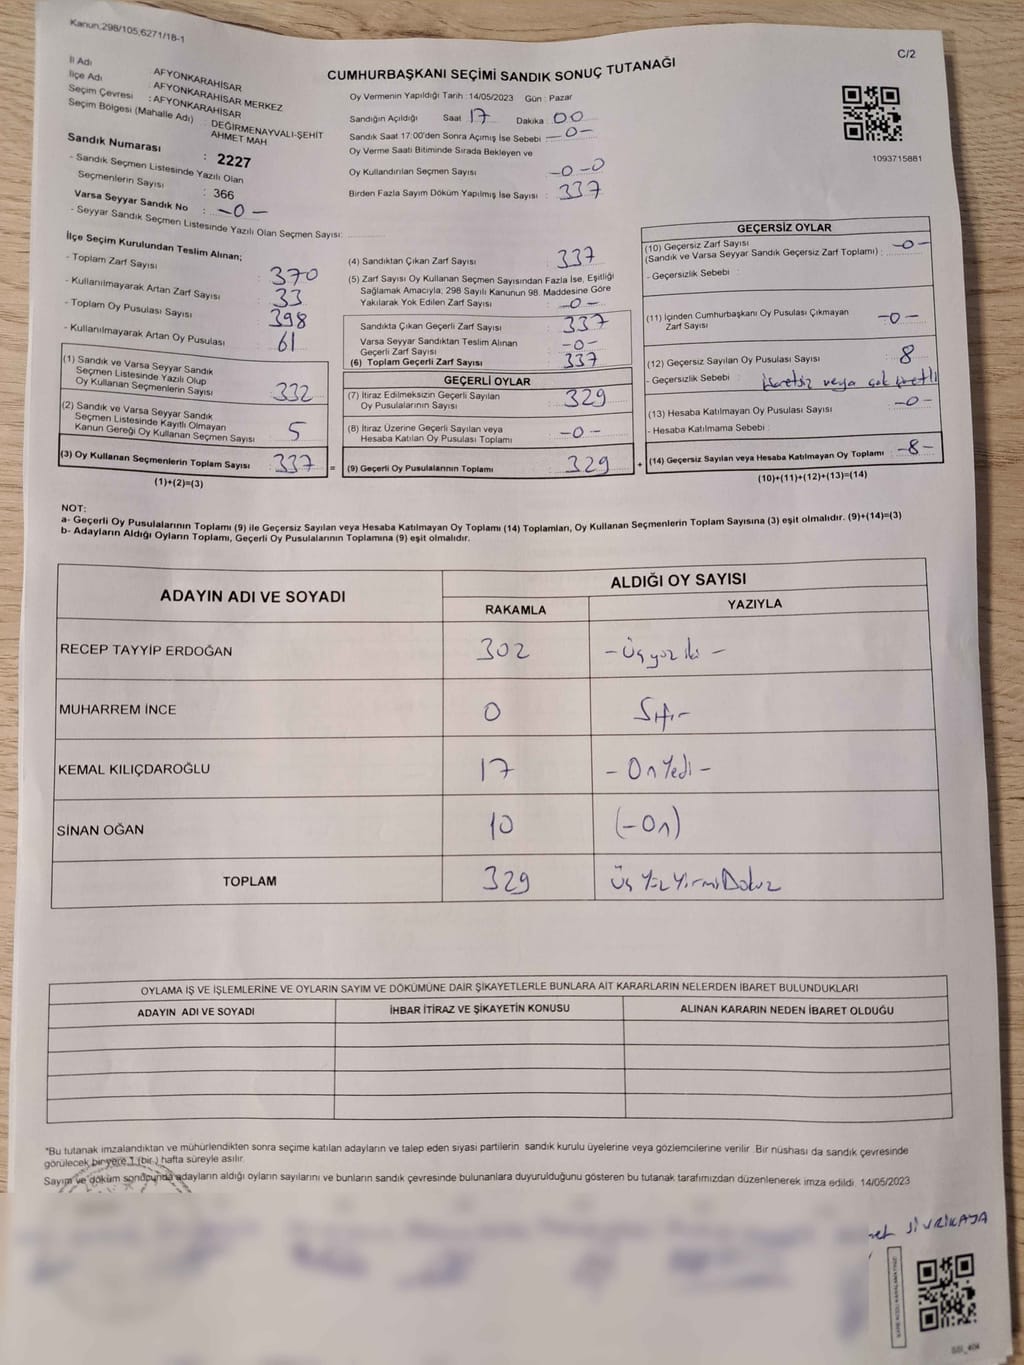 Kanun:298/105,6271/18-1
C/2
CUMHURBAŞKANI SEÇİMİ SANDIK SONUÇ TUTANAĞI
İl Adı : AFYONKARAHİSAR
İlçe Adı : AFYONKARAHİSAR MERKEZ
Seçim Çevresi : AFYONKARAHİSAR
Seçim Bölgesi (Mahalle Adı) : DEĞİRMENAYVALI-ŞEHİT
AHMET MAH
Sandık Numarası : 2227
- Sandık Seçmen Listesinde Yazılı Olan
Seçmenlerin Sayısı : 366
Varsa Seyyar Sandık No : -0-
- Seyyar Sandık Seçmen Listesinde Yazılı Olan Seçmen Sayısı:
Oy Vermenin Yapıldığı Tarih : 14/05/2023 Gün : Pazar
Sandığın Açıldığı Saat 17 Dakika : 00
Sandık Saat 17:00'den Sonra Açımış İse Sebebi : -0-
Oy Verme Saati Bitiminde Sırada Bekleyen ve
Oy Kullandırılan Seçmen Sayısı : -0-0
Birden Fazla Sayım Döküm Yapılmış İse Sayısı : 337
1093715881
İlçe Seçim Kurulundan Teslim Alınan;
- Toplam Zarf Sayısı : 370
- Kullanılmayarak Artan Zarf Sayısı : 33
- Toplam Oy Pusulası Sayısı : 398
- Kullanılmayarak Artan Oy Pusulası : 61
(1) Sandık ve Varsa Seyyar Sandık
Seçmen Listesinde Yazılı Olup
Oy Kullanan Seçmenlerin Sayısı : 332
(2) Sandık ve Varsa Seyyar Sandık
Seçmen Listesinde Kayıtlı Olmayan
Kanun Gereği Oy Kullanan Seçmen Sayısı : 5
(3) Oy Kullanan Seçmenlerin Toplam Sayısı : 337 =
(1)+(2)=(3)
(4) Sandıktan Çıkan Zarf Sayısı : 337
(5) Zarf Sayısı Oy Kullanan Seçmen Sayısından Fazla İse, Eşitliği
Sağlamak Amacıyla, 298 Sayılı Kanunun 98. Maddesine Göre
Yakılarak Yok Edilen Zarf Sayısı : -0-
Sandıkta Çıkan Geçerli Zarf Sayısı : 337
Varsa Seyyar Sandıktan Teslim Alınan
Geçerli Zarf Sayısı : -0-
(6) Toplam Geçerli Zarf Sayısı : 337
GEÇERLİ OYLAR
(7) İtiraz Edilmeksizin Geçerli Sayılan
Oy Pusulalarının Sayısı : 329
(8) İtiraz Üzerine Geçerli Sayılan veya
Hesaba Katılan Oy Pusulası Toplamı : -0-
(9) Geçerli Oy Pusulalarının Toplamı : 329 +
GEÇERSİZ OYLAR
(10) Geçersiz Zarf Sayısı
(Sandık ve Varsa Seyyar Sandık Geçersiz Zarf Toplamı) : -0-
- Geçersizlik Sebebi :
(11) İçinden Cumhurbaşkanı Oy Pusulası Çıkmayan
Zarf Sayısı : -0-
(12) Geçersiz Sayılan Oy Pusulası Sayısı : 8
- Geçersizlik Sebebi : işaretsiz veya çok işaretli
(13) Hesaba Katılmayan Oy Pusulası Sayısı : -0-
- Hesaba Katılmama Sebebi :
(14) Geçersiz Sayılan veya Hesaba Katılmayan Oy Toplamı : -8-
(10)+(11)+(12)+(13)=(14)
NOT:
a- Geçerli Oy Pusulalarının Toplamı (9) ile Geçersiz Sayılan veya Hesaba Katılmayan Oy Toplamı (14) Toplamları, Oy Kullanan Seçmenlerin Toplam Sayısına (3) eşit olmalıdır. (9)+(14)=(3)
b- Adayların Aldığı Oyların Toplamı, Geçerli Oy Pusulalarının Toplamına (9) eşit olmalıdır.
ADAYIN ADI VE SOYADI
ALDIĞI OY SAYISI
RAKAMLA YAZIYLA
RECEP TAYYİP ERDOĞAN 302 -Üçyüz iki-
MUHARREM İNCE 0 Sıfır
KEMAL KILIÇDAROĞLU 17 -OnYedi-
SİNAN OĞAN 10 (-On)
TOPLAM 329 Üç Yüz YirmiDokuz
OYLAMA İŞ VE İŞLEMLERİNE VE OYLARIN SAYIM VE DÖKÜMÜNE DAİR ŞİKAYETLERLE BUNLARA AİT KARARLARIN NELERDEN İBARET BULUNDUKLARI
ADAYIN ADI VE SOYADI İHBAR İTİRAZ VE ŞİKAYETİN KONUSU ALINAN KARARIN NEDEN İBARET OLDUĞU
*Bu tutanak imzalandıktan ve mühürlendikten sonra seçime katılan adayların ve talep eden siyasi partilerin sandık kurulu üyelerine veya gözlemcilerine verilir. Bir nüshası da sandık çevresinde
görülecek bir yere 1 (bir) hafta süreyle asılır.
Sayım ve döküm sonucunda adayların aldığı oyların sayılarını ve bunların sandık çevresinde bulunanlara duyurulduğunu gösteren bu tutanak tarafımızdan düzenlenerek imza edildi. 14/05/2023
SİVRİKAYA